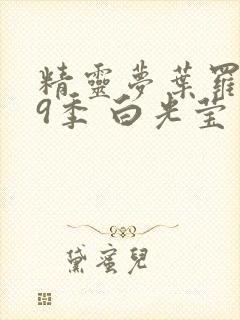 精靈夢葉羅
9季 白光莹
黛蜜兒